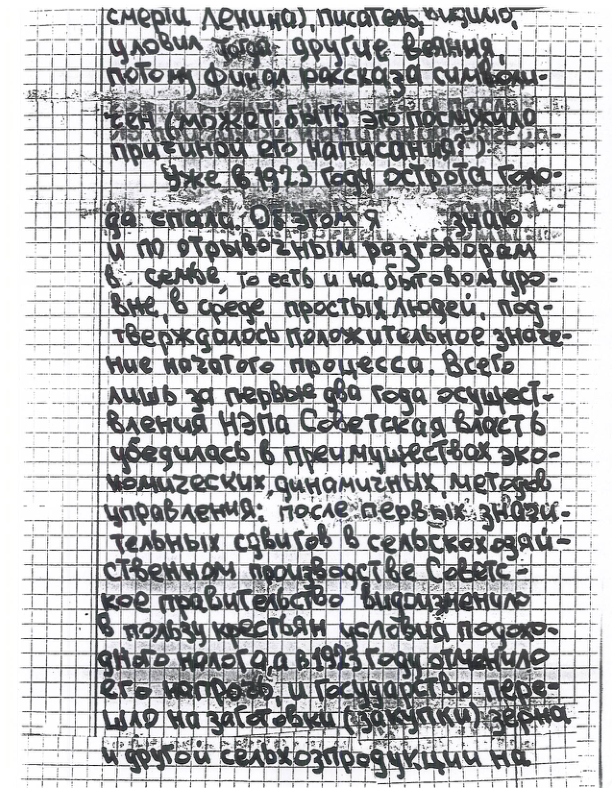 смерти Ленина), писатель, видимо,
уловил тогда другие веяния,
потому финал рассказа символи-
чен (может быть это послужило
причиной его написания?).
Уже в 1923 году острота голо-
да спала. Об этом я знаю
и по отрывочным разговорам
в семье, то есть и на бытовом уро-
вне, в среде простых людей, под-
тверждалось положительное значе-
ние начатого процесса. Всего
лишь за первые два года осущест-
вления НЭПа Советская власть
убедилась в преимуществах эко-
номических динамичных методов
управления: после первых значи-
тельных сдвигов в сельскохозяй-
ственном производстве Советс-
кое правительство видоизменило
в пользу крестьян условия подохо-
дного налога, а в 1923 году отменило
его напрочь, и государство пере-
шло на заготовки (закупки) зерна
и другой сельхозпродукции на